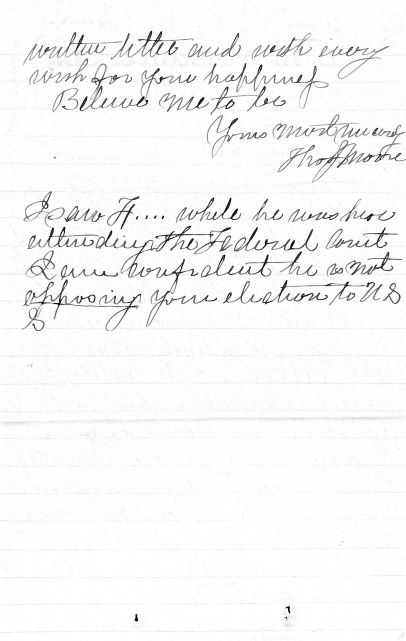 written letter and with every
wish for your happiness
Believe me to be
Yours Most sincerely
Thos J Moore
I saw H.... while he was here
attending the Federal Court
I am confident he is not
opposing your election to U S
S